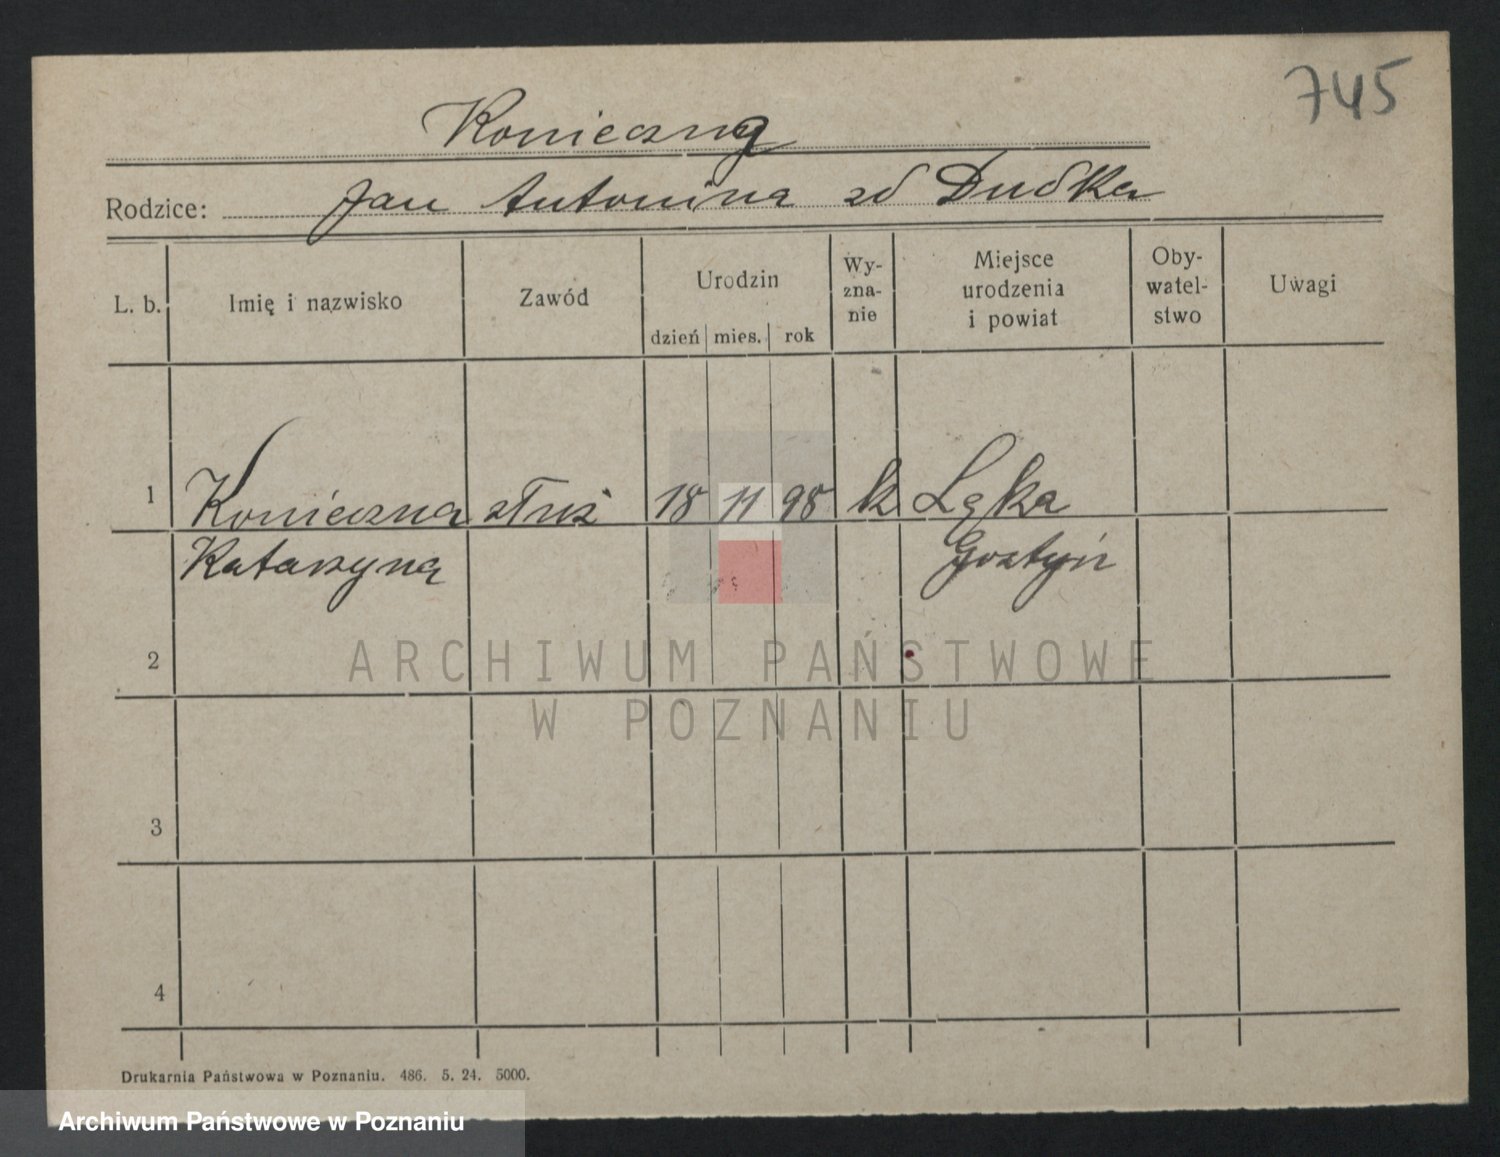 745
Konieczny
Rodzice: Jan Antonina zd Dudka
L. b. Imię i nazwisko Zawód Urodzin dzień mies. rok Wy-zna-nie Miejsce urodzenia i powiat Oby-watel-stwo Uwagi
1 Konieczna służ 18 11 98 k Łąka
Katarzyna Gostyń
2
3
4
Drukarnia Państwowa w Poznaniu. 486. 5. 24. 5000.
ARCHIWUM PAŃSTWOWE
W POZNANIU
Archiwum Państwowe w Poznaniu